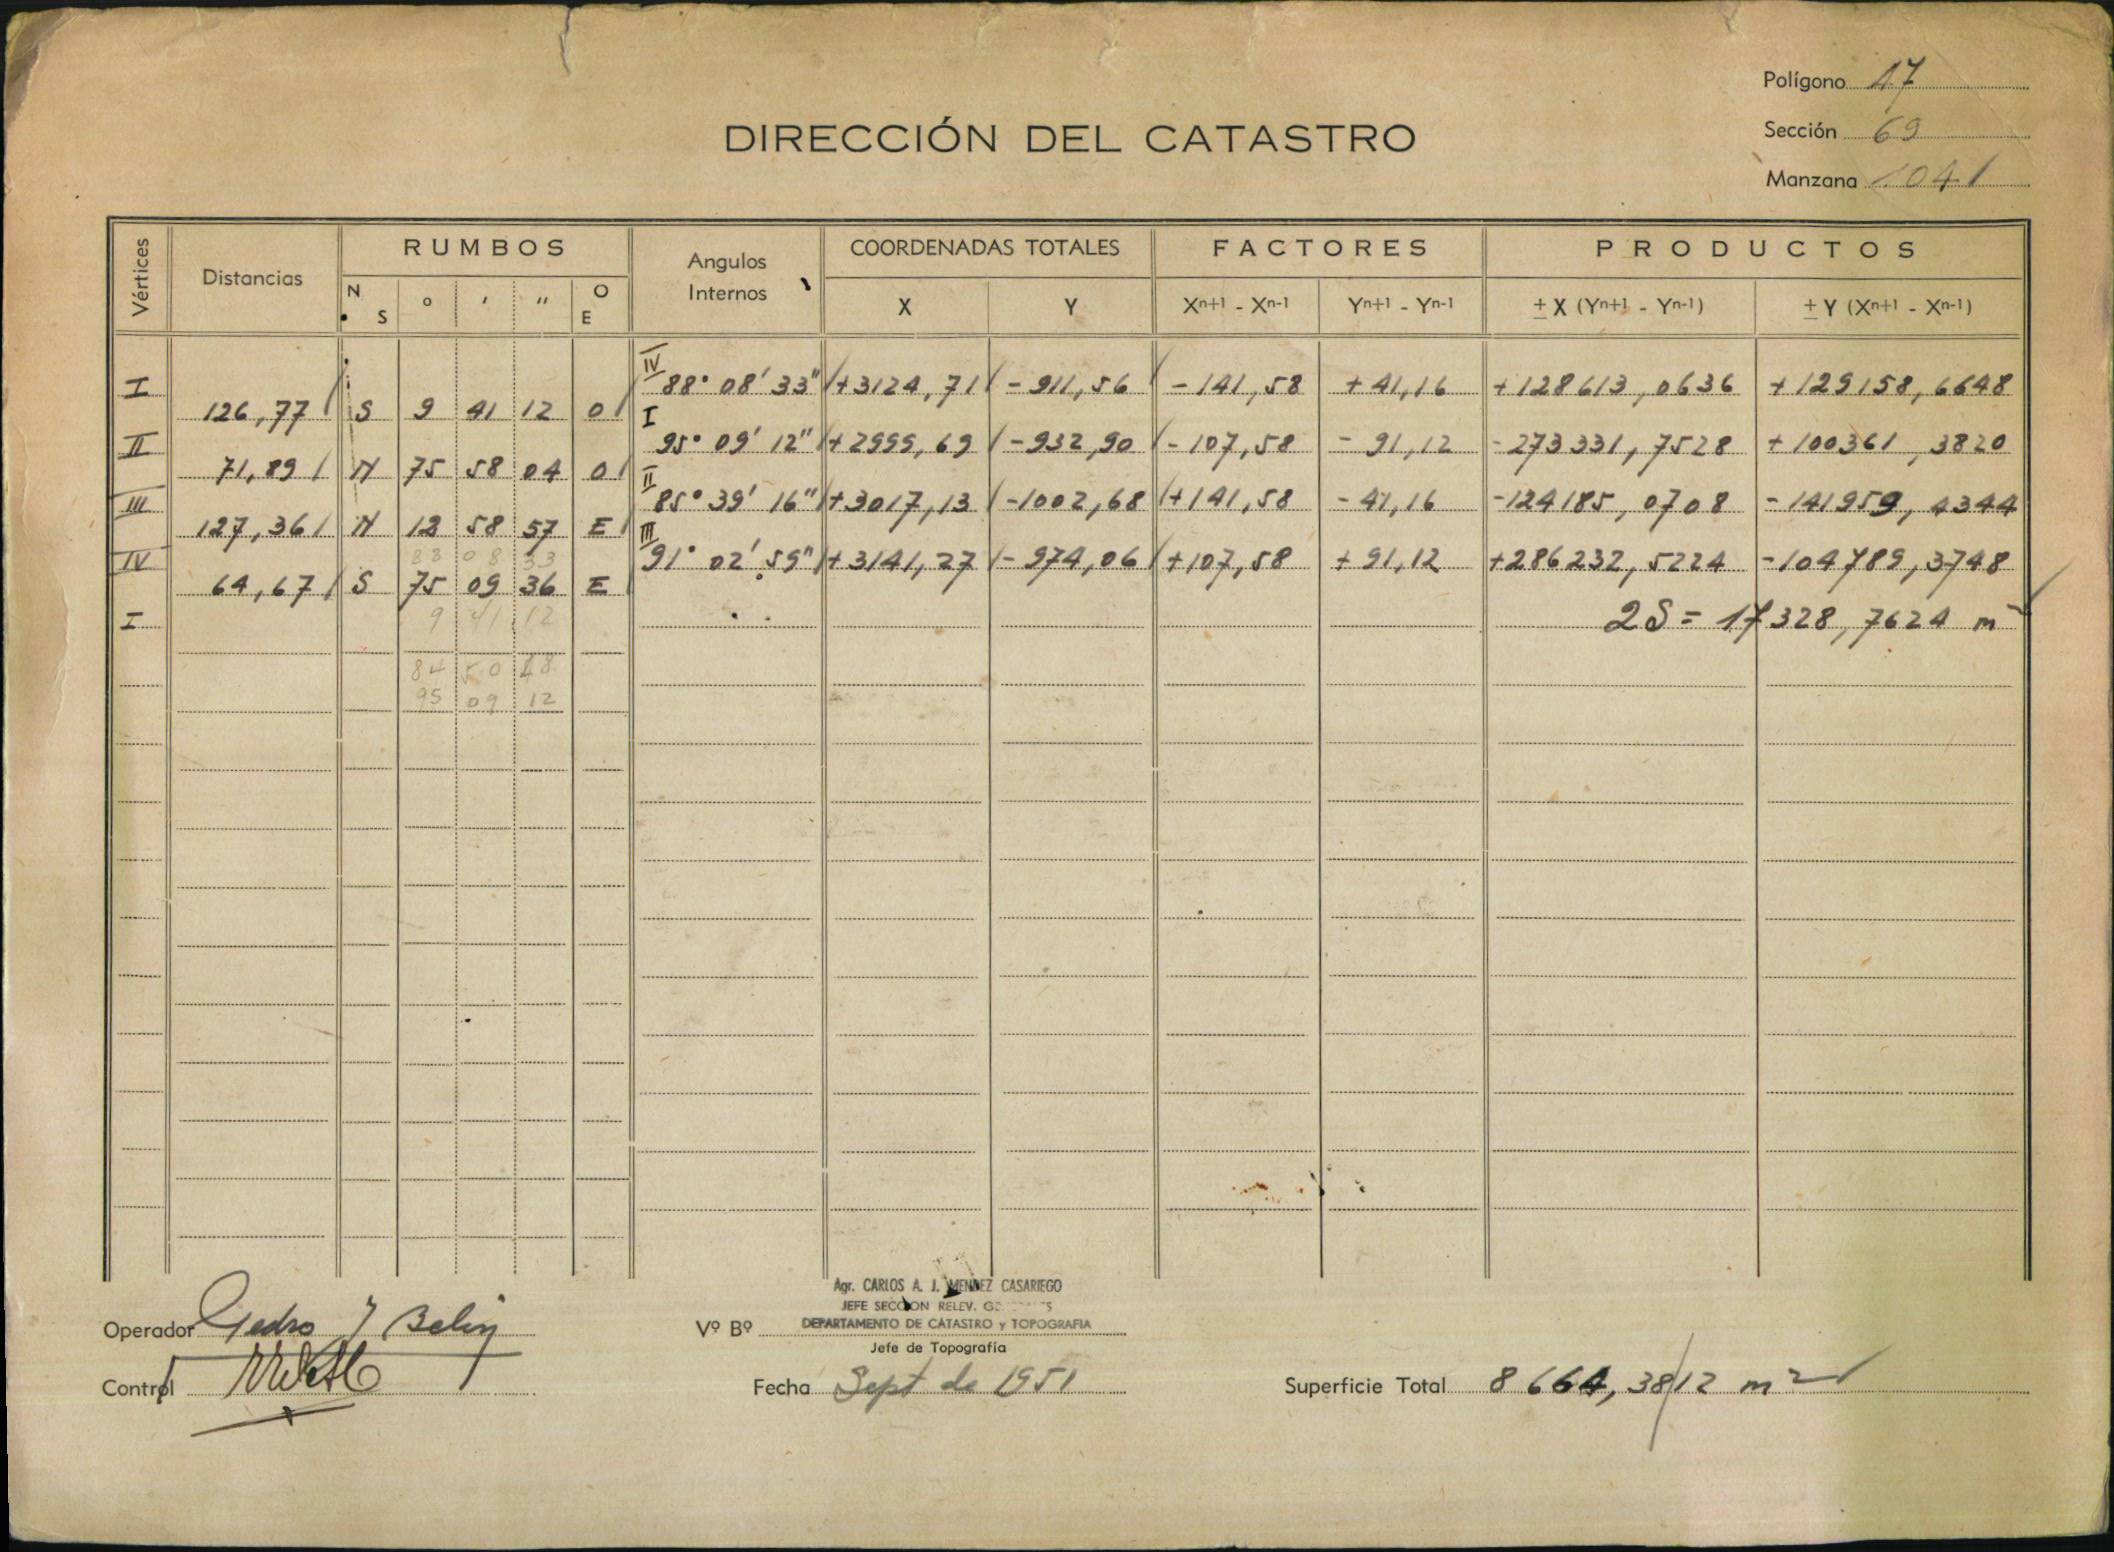 Polígono 17
Sección 69
Manzana 1041
DIRECCIÓN DEL CATASTRO
Vértices Distancias RUMBOS Angulos Internos COORDENADAS TOTALES FACTORES PRODUCTOS
N S ° ′ ″ O E X Y Xn+1 - Xn-1 Yn+1 - Yn-1 ± X (Yn+1 - Yn-1) ± Y (Xn+1 - Xn-1)
I IV 88° 08' 33" +3124,71 -911,56 -141,58 +41,16 +128613,0636 +129158,6648
126,77 S 9 41 12 O
II I 95° 09' 12" +2999,69 -932,90 -107,58 -91,12 -273331,7528 +100361,3820
71,89 N 75 58 04 O
III II 85° 39' 16" +3017,13 -1002,68 +141,58 -41,16 -124185,0708 -141959,4344
127,36 N 12 58 57 E
IV 88 08 33 III 91° 02' 59" +3141,27 -974,06 +107,58 +91,12 +286232,5224 -104789,3748
64,67 S 75 09 36 E
I 9 41 12 2S = 17328,7624 m²
84 50 48
95 09 12
Agr. CARLOS A. J. MENDEZ CASARIEGO
JEFE SECCION RELEV.
Operador Pedro J Belin Vº Bº DEPARTAMENTO DE CATASTRO y TOPOGRAFIA
Jefe de Topografía
Control Fecha Sept de 1951 Superficie Total 8664,3812 m²